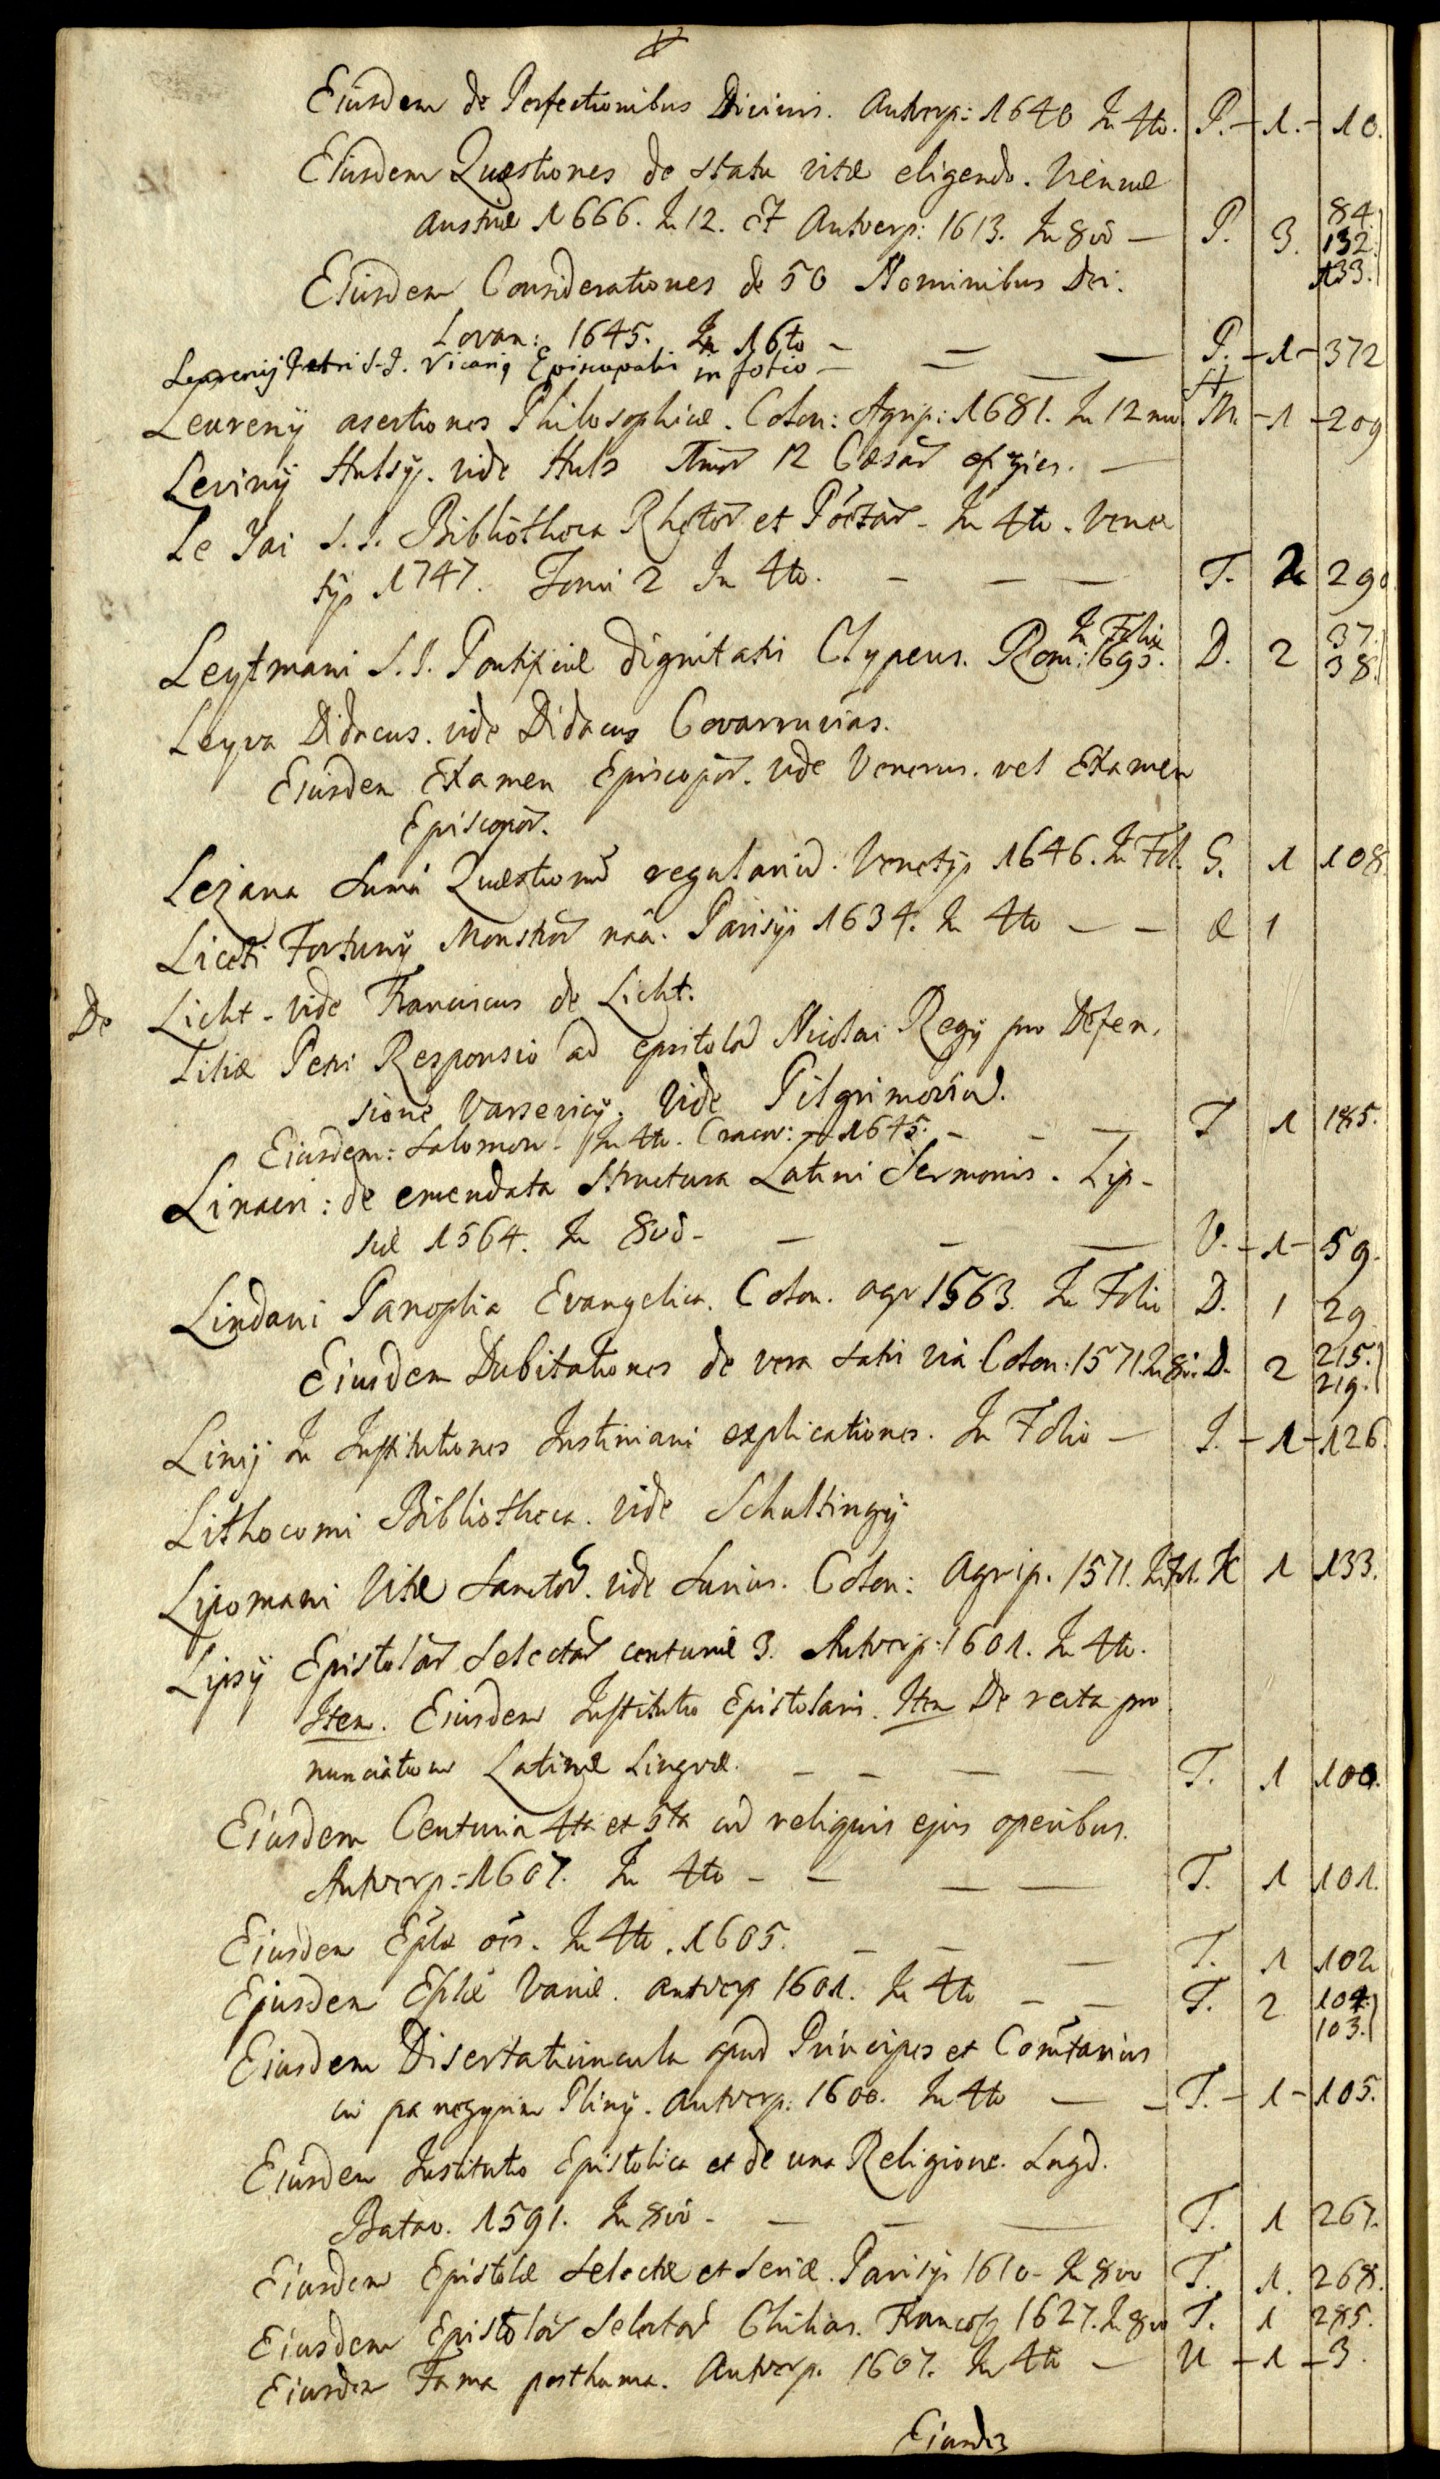 Eiusdem de Perfectionibus Divinis. Antverp: 1640 In 4to. P. - 1. - 10.
Eiusdem Quæstiones de statu vitæ eligendo. Viennæ
Austriæ 1666. In 12. Et Antverp: 1613. In 8vo — P. 3. 84. 132. 133.
Eiusdem Considerationes de 50 Nominibus Dei.
Lovan: 1645. In 16to - — — P. - 1 - 372
Leurenij Petri S.J. Vicarig Episcopalis in folio —
Leurenij asertiones Philosophicæ. Colon: Agrip: 1681. In 12mo M. - 1 - 209
Levinij Hulsij. vide Huls 12 Cæsar effigies. —
Le Jai S.J. Bibliotheca Rhetor et Poëtar - In 4to. Vene
tijs 1747. Tomi 2 In 4to. - — — T. 2 290
Leytmani S.J. Pontificiæ dignitatis Clypeus. Rom: 1695. In Folio D. 2 37. 38.
Leyva Didacus. vide Didacus Covarruvias.
Eiusdem Examen Episcopor. vide Venerus. vel Examen
Episcopor.
Lezana Suma Quæstionu regulariu. Venetijs 1646. In Fol. S. 1 108
Liceti Fortunij Monstror naa. Parisijs 1634. In 4to — — æ 1
De Licht - vide Franciscus de Licht.
Liliæ Petri Responsio ad epistola Nicolai Regij pro Defen,
sione Varsevicij. Vide Pilgrimovia.
Eiusdem: Salomon - In 4to. Cracov: - 1645. - - — T 1 185.
Linacri: de emendata Structura Latini Sermonis. Lip-
siæ 1564. In 8vo - — — — V. - 1 - 59.
Lindani Panoplia Evangelica. Colon. agr 1563. In Folio D. 1 29
Eiusdem Dubitationes de vera salu via Colon: 1571. In 8vo. D. 2 215. 219.
Linij In Institutiones Justiniani explicationes. In Folio — J. - 1 - 126.
Lithocomi Bibliotheca. vide Schultingij
Lipomani Vitæ Sanctor. vide Surius. Colon: Agrip. 1571. In Fol. K 1 133.
Lipsij Epistolar Selectar centuriæ 3. Antverp: 1601. In 4to.
Item. Eiusdem Institutio Epistolaris. Item De recta pro
nunciatione Latinæ Linguæ. — — — — T. 1 100.
Eiusdem Centuria 4ta et 5ta cu reliquis ejus operibus.
Antverp: 1607. In 4to - — — — T. 1 101.
Eiusdem Eplæ oes. In 4to. 1605. — — — T. 1 102
Ejusdem Eplæ Variæ. Antverp 1601. In 4to — — T. 2 104. 103.
Eiusdem Disertatiuncula apud Principes et Comtarius
cu panegyrim Plinij. Antverp: 1600. In 4to — — T. - 1 - 105.
Eiusdem Institutio Epistolica et de una Religione. Lugd.
Batav. 1591. In 8vo - — — — T. 1 267.
Eiusdem Epistolæ Selectæ et Seriæ. Parisijs 1610 - In 8vo T. 1. 268.
Eiusdem Epistolar Selectar Chilias. Francof 1627. In 8vo T. 1 285.
Eiusdem Fama posthuma. Antverp. 1607. In 4to — U - 1 - 3.
Eiusdem